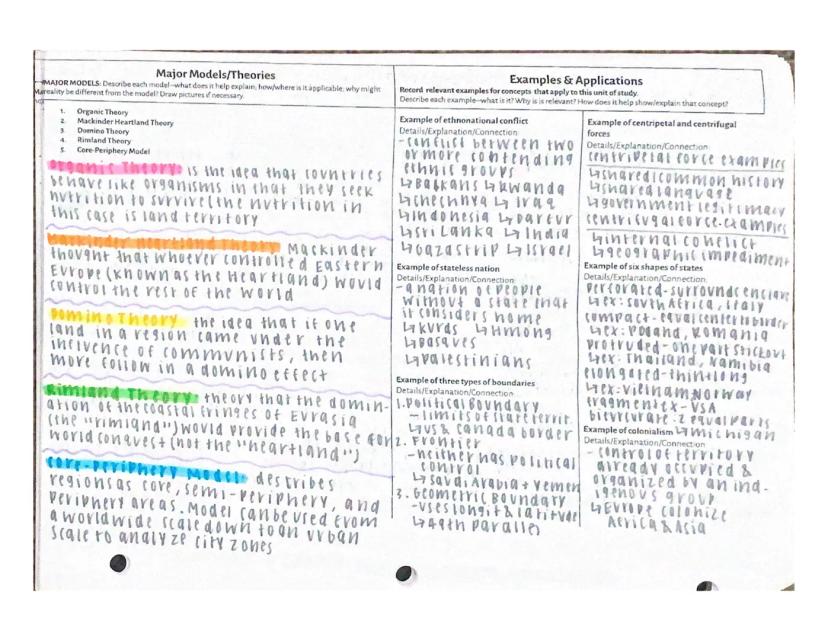 Major Models/Theories
MAJOR MODELS: Describe each model--what does it help explain; how/where is it applicable; why might
reality be different from the model? Draw pictures if necessary.
1. Organic Theory
2. Mackinder Heartland Theory
3. Domino Theory
4. Rimland Theory
5. Core-Periphery Model
Organic Theory is the idea that countries
behave like organisms in that they seek
nutrition to survive (the nutrition in
this case is land territory
Mackinder Heartland Theory Mackinder
thought that whoever controlled Eastern
Europe (known as the Heartland) would
control the rest of the world
Domino Theory the idea that if one
land in a region came under the
influence of communists, then
more follow in a domino effect
Rimland Theory theory that the domin-
ation of the coastal fringes of Eurasia
(the "rimland") would provide the base for
world conquest (not the "heartland")
Core-Periphery Model describes
regions as core, semi-periphery, and
periphery areas. Model can be used from
a worldwide scale down to an urban
scale to analyze city zones
Examples & Applications
Record relevant examples for concepts that apply to this unit of study.
Describe each example--what is it? Why is is relevant? How does it help show/explain that concept?
Example of ethnonational conflict
Details/Explanation/Connection:
-conflict between two
or more contending
ethnic groups
↳Balkans ↳Rwanda
↳Chechnya ↳Iraq
↳Indonesia ↳Darfur
↳Sri Lanka ↳India
↳Gaza Strip ↳Israel
Example of stateless nation
Details/Explanation/Connection:
-a nation of people
without a state that
it considers home
↳Kurds ↳Hmong
↳Basques
↳Palestinians
Example of three types of boundaries
Details/Explanation/Connection:
1. Political Boundary
-limits of state territ.
↳US & Canada border
2. Frontier
-neither has political
control
↳Saudi Arabia + Yemen
3. Geometric Boundary
-uses longit & latitude
↳49th Parallel
Example of centripetal and centrifugal
forces
Details/Explanation/Connection:
centripetal force examples
↳shared/common history
↳shared language
↳government legitimacy
centrifugal force-examples
↳internal conflict
↳geographic impediment
Example of six shapes of states
Details/Explanation/Connection:
perforated-surrounds enclave
↳ex: South Africa, Italy
compact-equal center to border
↳ex: Poland, Romania
protruded-one part stickout
↳ex: Thailand, Namibia
elongated-thin+long
↳ex: Vietnam, Norway
fragment ex-USA
bifurcate-2 equal parts
Example of colonialism ↳Michigan
Details/Explanation/Connection
- control of territory
already occupied &
organized by an ind-
igenous group
↳Europe colonize
Africa & Asia